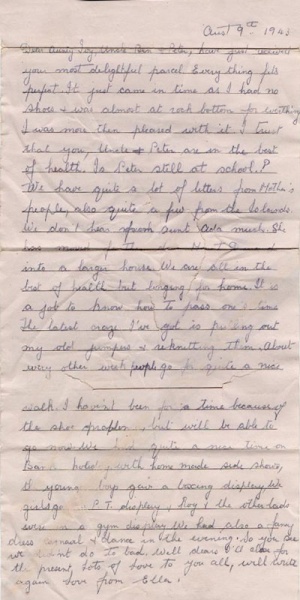 August 9th 1943
Dear Aunty Ivy, Uncle & Peter, have just received
your most delightful parcel. Everything fits
perfect. It just came in time as I had no
shoes & was almost at rock bottom for everything
I was more then pleased with it. I trust
that you, Uncle & Peter are in the best
of health. Is Peter still at school?
We have quite a lot of letters from Mother's
people, also quite a few from the Islands.
We don't hear from aunt Ada much. She
has moved
into a larger house. We are all in the
best of health but longing for home. It is
a job to know how to pass one's time
The latest craze I've got is pulling out
my old jumpers & reknitting them. About
every other week people go for quite a nice
walk. I haven't been for a time because of
the shoe problem, but will be able to
go now. We had quite a nice time on
Bank holiday with home made side shows,
& young boys gave a boxing display. We
girls gave P.T. display, Roy & the other lads
were in a gym display. We had also a fancy
dress carnival & dance in the evening. So you see
we didn't do to bad. Well dears I'll close for
the present, Lots of Love to you all, will write
again Love from Ellen.